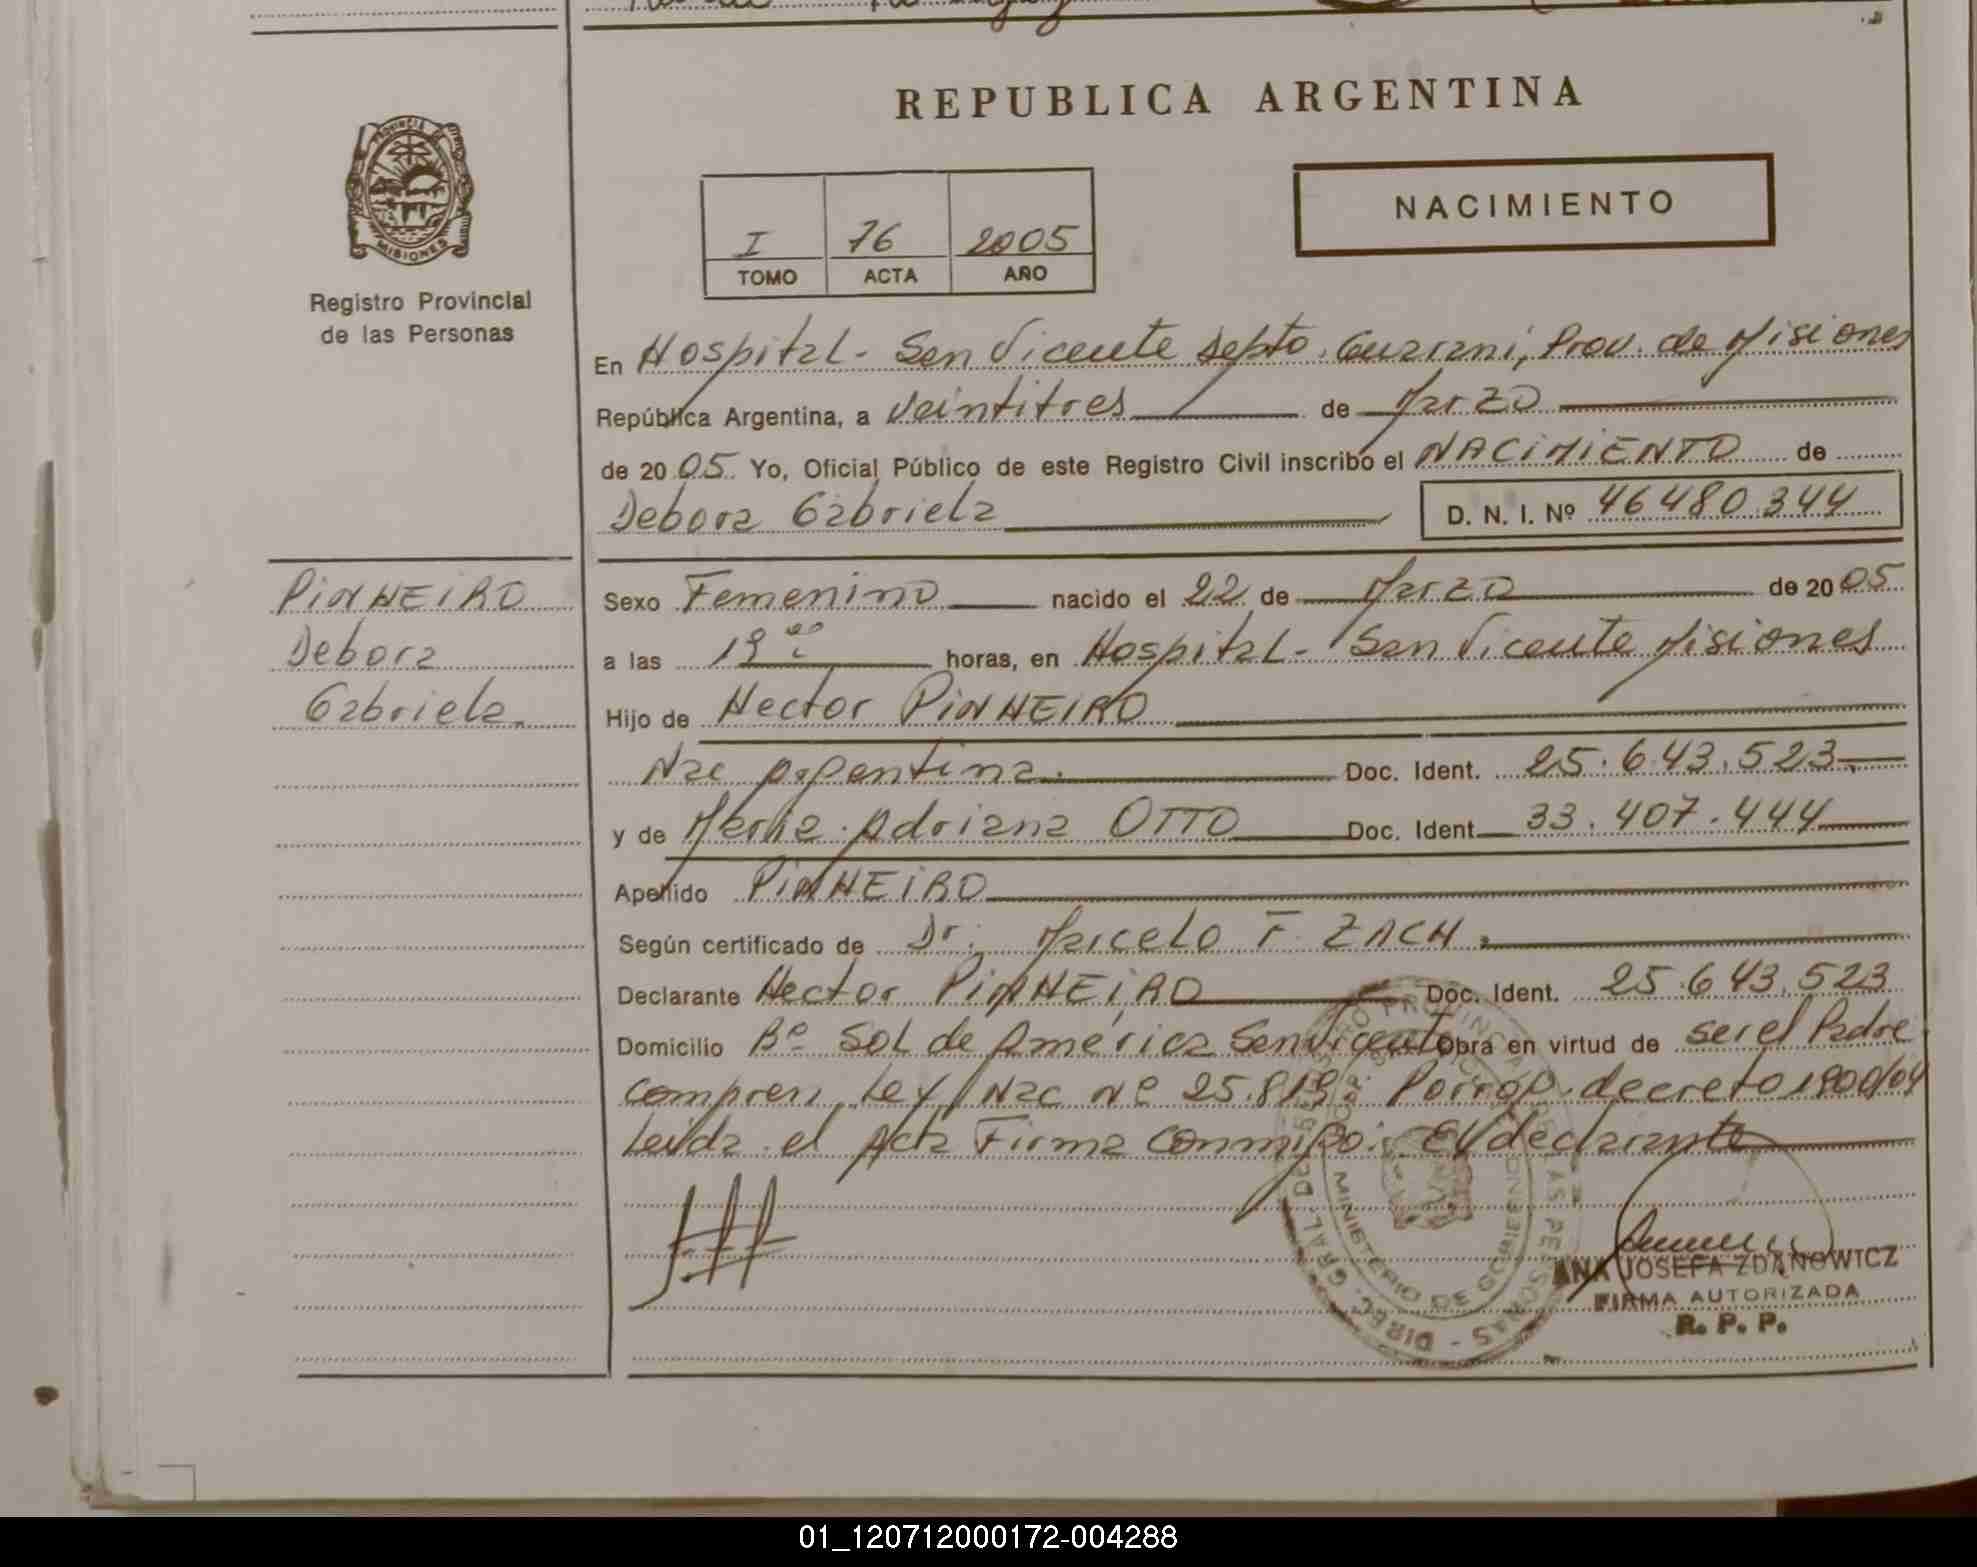 REPUBLICA ARGENTINA
PROVINCIA DE
MISIONES
Registro Provincial
de las Personas
I 76 2005
TOMO ACTA AÑO
NACIMIENTO
En Hospital - San Vicente Depto. Guarani, Prov. de Misiones
República Argentina, a veintitres de Marzo
de 2005. Yo, Oficial Público de este Registro Civil inscribo el NACIMIENTO de
Debora Gabriela D. N. I. Nº 46480.344
PINHEIRO
Debora
Gabriela
Sexo Femenino nacido el 22 de Marzo de 2005
a las 19 00 horas, en Hospital - San Vicente Misiones
Hijo de Hector PINHEIRO
Nac Argentina. Doc. Ident. 25.643.523
y de Maria Adriana OTTO Doc. Ident. 33.407.444
Apellido PINHEIRO
Según certificado de Dr. Marcelo F ZACH
Declarante Hector PINHEIRO Doc. Ident. 25.643.523
Domicilio Bº Sol de América San Vicente Obra en virtud de ser el Padre
Compren Ley Nac Nº 25.819: Porrog. decreto 1900/04
Leida el Acta Firma Conmigo: El declarante
DIREC. GRAL. DEL REGISTRO PROVINCIAL DE LAS PERSONAS
MINISTERIO DE GOBIERNO
ANA JOSEFA ZDANOWICZ
FIRMA AUTORIZADA
R. P. P.
01_120712000172-004288